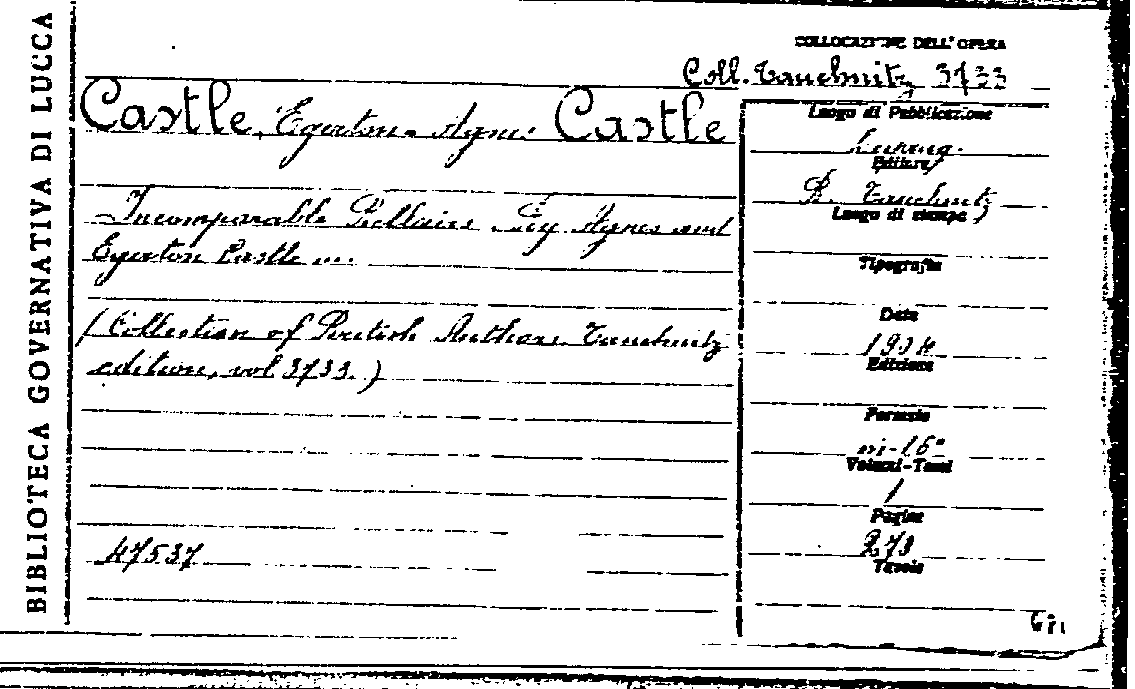 BIBLIOTECA GOVERNATIVA DI LUCCA
COLLOCAZIONE DELL'OPERA
Coll. Tauchnitz 3733
Castle, Egerton - Agnes Castle
Incomparable Bellairs. By Agnes and
Egerton Castle ...
(Collection of British Authors. Tauchnitz
edition, vol 3733.)
47537
Luogo di Pubblicazione
Leipzig.
Editore
B. Tauchnitz
Luogo di stampa
Tipografia
Data
1904
Edizione
Formato
in-16°
Volumi-Tomi
1
Pagine
Tavole